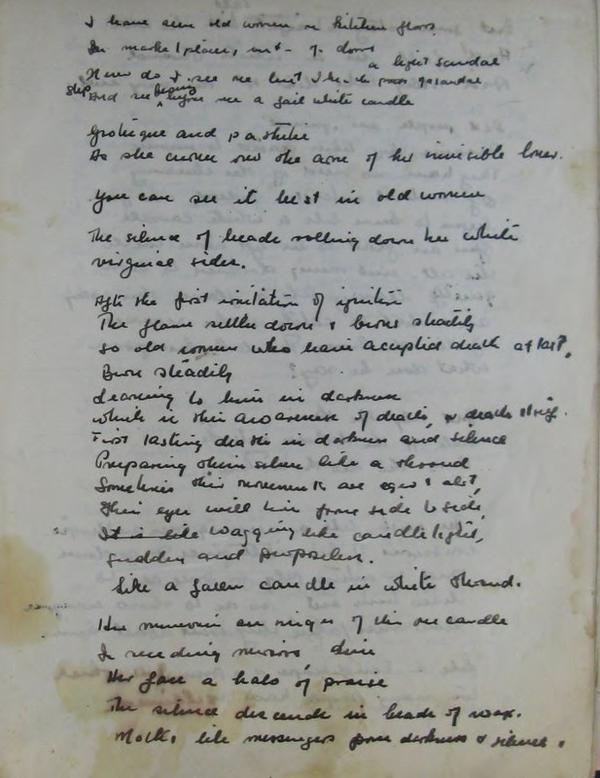 I have seen old women on kitchen floors
In market places, out of doors
a light scandal
How do I see
step And see a frail white candle
Grotesque and pathetic
As she curves over the arm of her invisible lover.
You can see it best in old women
The silence of beads rolling down her white
virginal sides.
After the first irritation of ignition
The flame settles down & burns steadily
So old women who have accepted death at last,
Burn steadily
Learning to burn in darkness
which is their awareness of death, or death itself.
First tasting death in darkness and silence
Preparing their silence like a shroud
Sometimes their movements are eager & alert,
Their eyes will turn from side to side,
It is like wagging like candle lights,
sudden and purposeless.
Like a frozen candle in white shroud.
Her memories are images of this one candle
In receding mirrors
Her face a halo of praise
The silence descends in beads of wax.
Moths like messengers from darkness & silence.